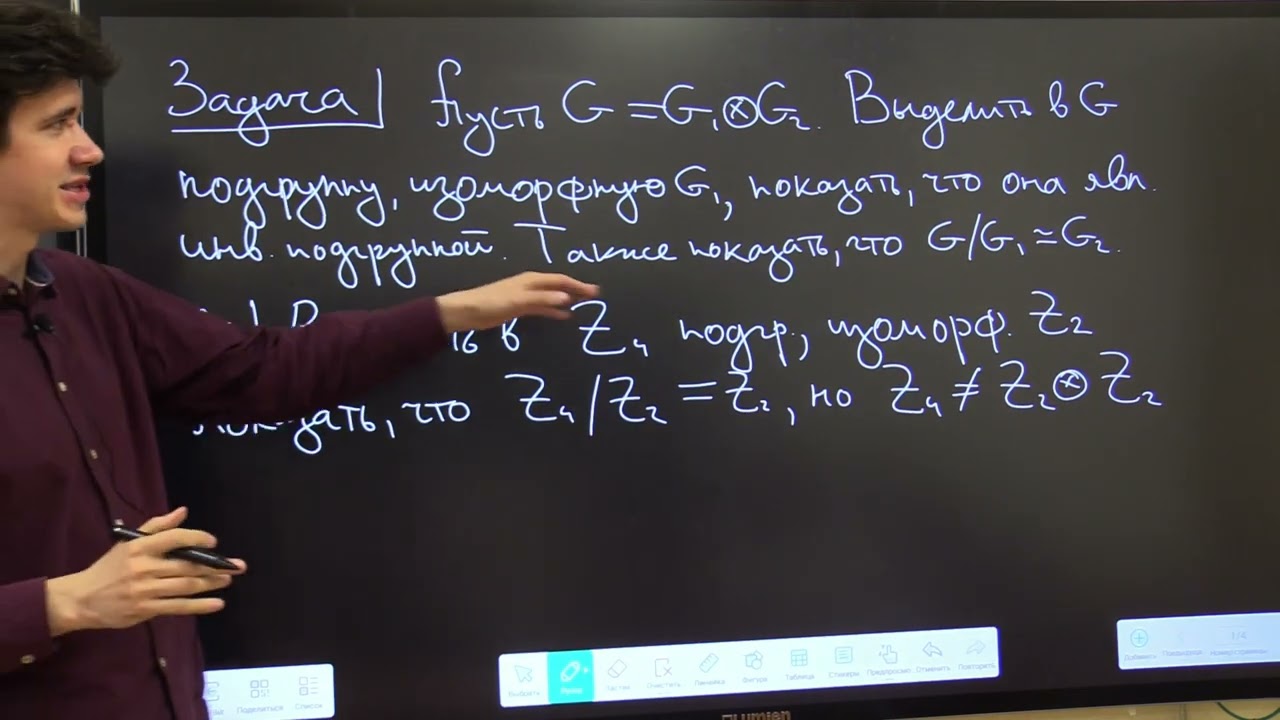 Задача Пусть G = G₁ ⊗ G₂. Выделить в G
подгруппу, изоморфную G₁, показать, что она явл.
инв. подгруппой. Также показать, что G/G₁ ≃ G₂.
в Z₄ подгр, изоморф. Z₂
что Z₄/Z₂ = Z₂, но Z₄ ≠ Z₂ ⊗ Z₂
Выбрать
Ластик
Очистить
Линейка
Фигура
Таблица
Стикеры
Предпросмот
Отменить
Повторить
Добавить
1/4
Поделиться
Список
Lumien